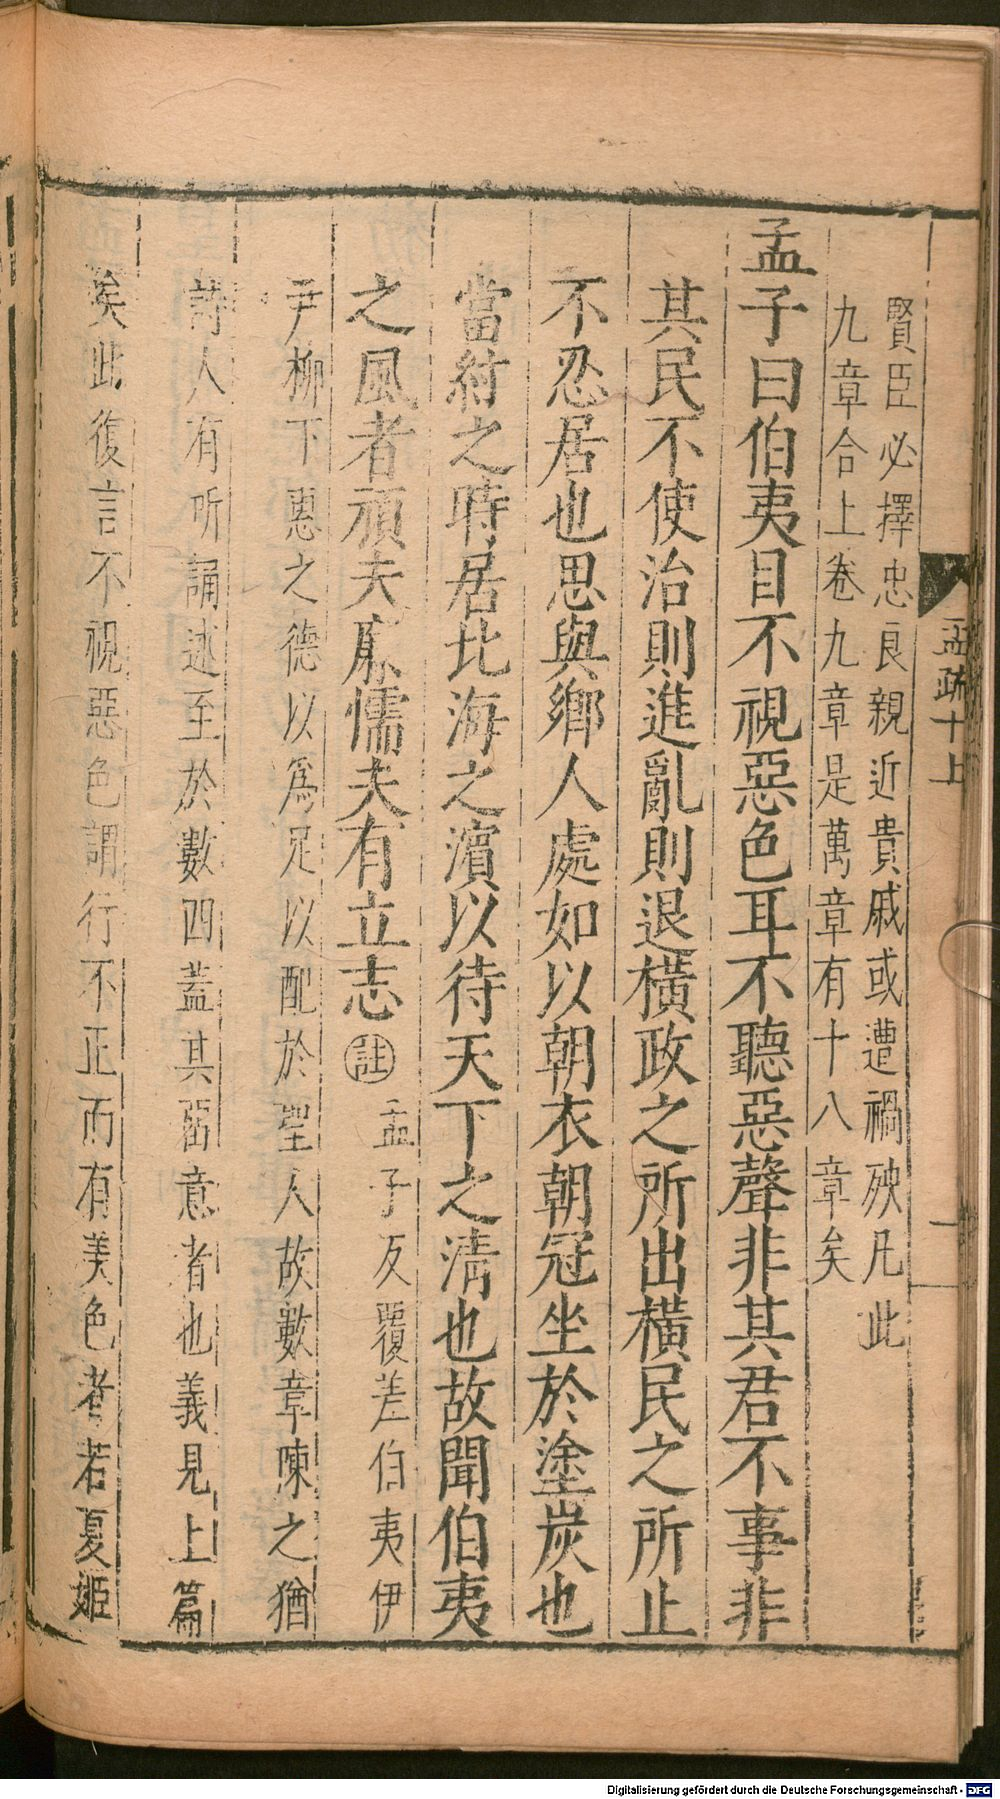 孟疏十上
一
賢臣必擇忠良親近貴戚或遭禍殃凡此
九章合上卷九章是萬章有十八章矣
孟子曰伯夷目不視惡色耳不聽惡聲非其君不事非
其民不使治則進亂則退橫政之所出橫民之所止
不忍居也思與鄉人處如以朝衣朝冠坐於塗炭也
當紂之時居北海之濱以待天下之清也故聞伯夷
之風者頑夫廉懦夫有立志註孟子反覆差伯夷伊
尹柳下惠之德以爲足以配於聖人故數章陳之猶
詩人有所誦述至於數四蓋其留意者也義見上篇
矣此復言不視惡色謂行不正而有美色者若夏姬
Digitalisierung gefördert durch die Deutsche Forschungsgemeinschaft - DFG